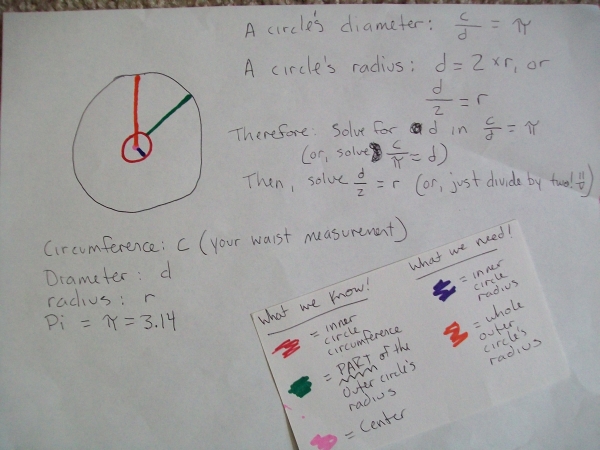 A circle's diameter: c/d = π
A circle's radius: d = 2 × r, or
d/2 = r
Therefore: Solve for d in c/d = π
(or, solve c/π = d)
Then, solve d/2 = r (or, just divide by two!!)
Circumference: C (your waist measurement)
Diameter: d
radius: r
Pi = π = 3.14
What we know!
= inner
circle
circumference
= PART of the
outer circle's
radius
= Center
What we need!
= inner
circle
radius
= whole
outer
circle's
radius